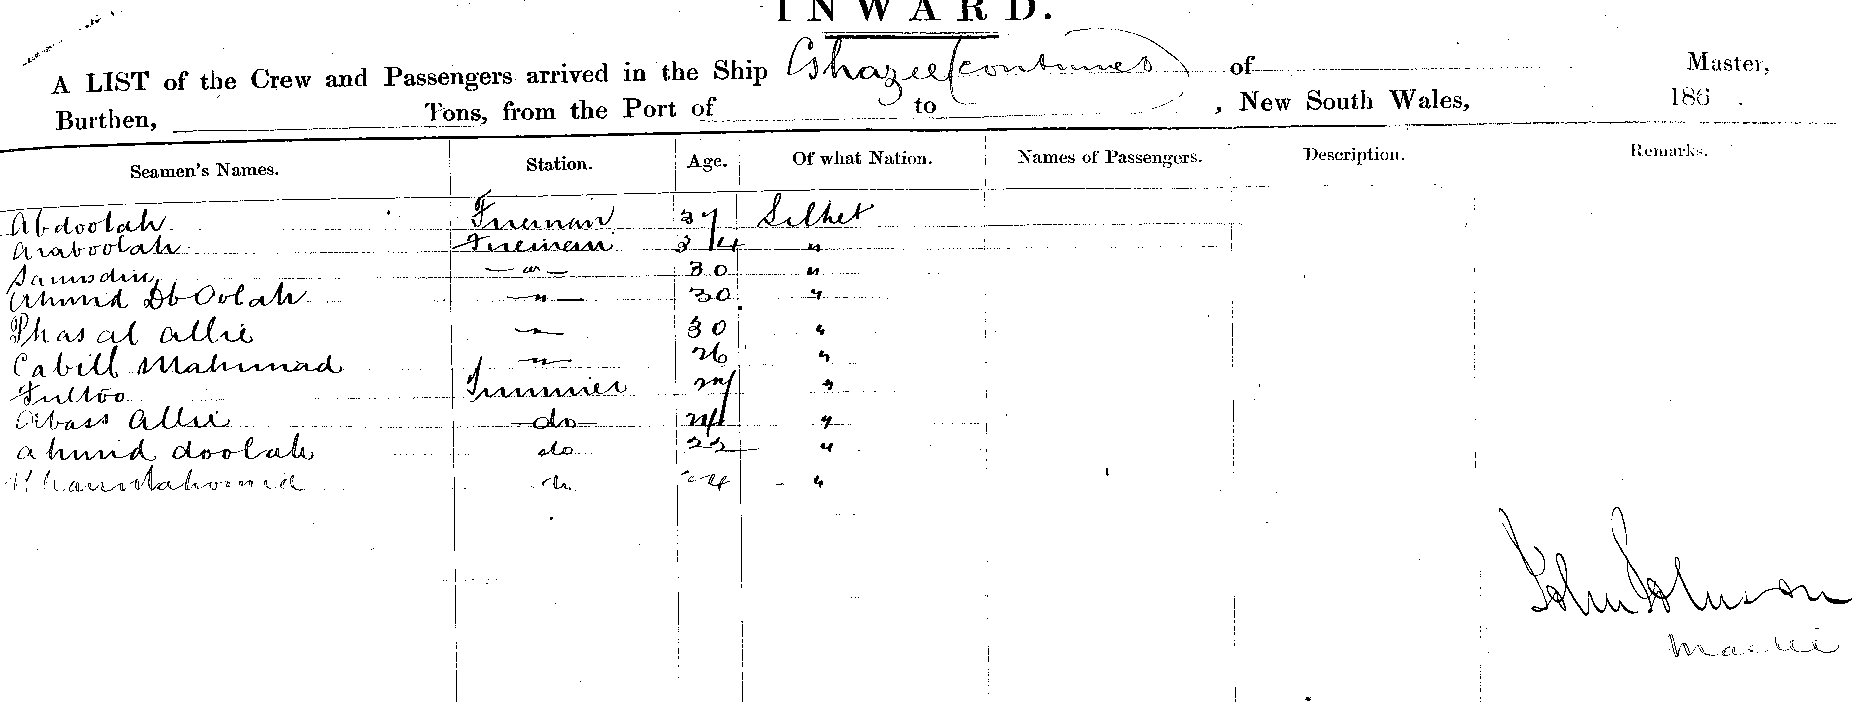 INWARD.
A LIST of the Crew and Passengers arrived in the Ship Ghazee (continued) of Master,
Burthen, Tons, from the Port of to , New South Wales, 186 .
Seamen's Names. Station. Age. Of what Nation. Names of Passengers. Description. Remarks.
Abdoolah Fireman 37 Silhet
Araboolah Fireman 34 "
Samsdin " 30 "
Ahmid Db Oolah " 30 "
Phasal allie " 30 "
Cabill Mahumad " 26 "
Fultoo Trimmer 27 "
Abass Allie do 24 "
ahmid doolah do 22 "
" 24 "
John Johnson
Master